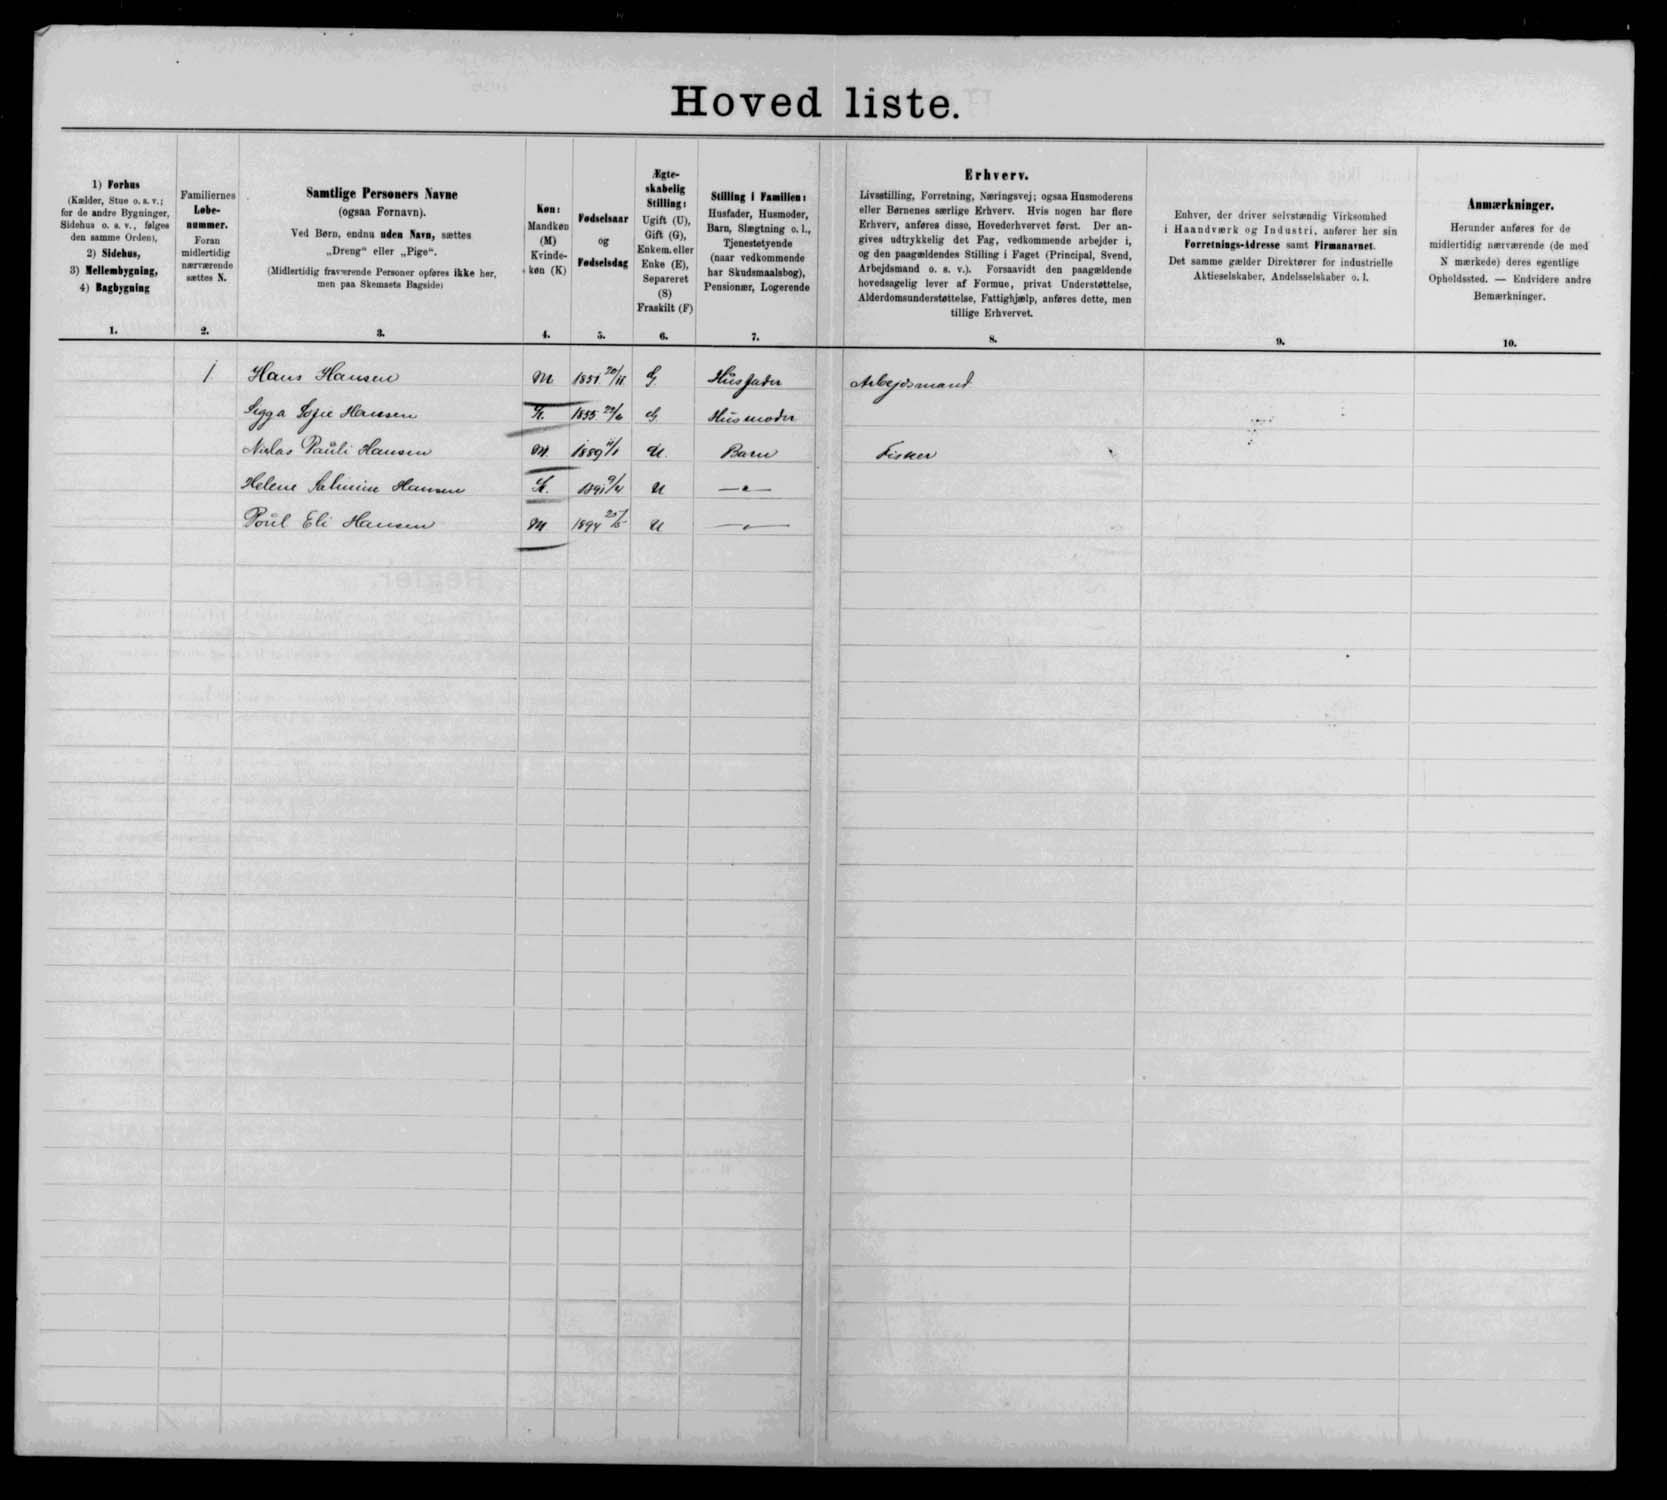 Hovedliste.
1) Forhus
(Kælder, Stue o. s. v.;
for de andre Bygninger,
Sidehus o. s. v., følges
den samme Orden),
2) Sidehus,
3) Mellembygning,
4) Bagbygning
1.
Familiernes
Løbe-
nummer.
Foran
midlertidig
nærværende
sættes N.
2.
Samtlige Personers Navne
(ogsaa Fornavn).
Ved Børn, endnu uden Navn, sættes
„Dreng“ eller „Pige“.
(Midlertidig fraværende Personer opføres ikke her,
men paa Skemaets Bagside)
3.
Køn:
Mandkøn
(M)
Kvinde-
køn (K)
4.
Fødselsaar
og
Fødselsdag
5.
Ægte-
skabelig
Stilling:
Ugift (U),
Gift (G),
Enkem. eller
Enke (E),
Separeret
(S)
Fraskilt (F)
6.
Stilling i Familien:
Husfader, Husmoder,
Barn, Slægtning o. l.,
Tjenestetyende
(naar vedkommende
har Skudsmaalsbog),
Pensionær, Logerende
7.
Erhverv.
Livsstilling, Forretning, Næringsvej; ogsaa Husmoderens
eller Børnenes særlige Erhverv. Hvis nogen har flere
Erhverv, anføres disse, Hovederhvervet først. Der an-
gives udtrykkelig det Fag, vedkommende arbejder i,
og den paagældendes Stilling i Faget (Principal, Svend,
Arbejdsmand o. s. v.). Forsaavidt den paagældende
hovedsagelig lever af Formue, privat Understøttelse,
Alderdomsunderstøttelse, Fattighjælp, anføres dette, men
tillige Erhvervet.
8.
Enhver, der driver selvstændig Virksomhed
i Haandværk og Industri, anfører her sin
Forretnings-Adresse samt Firmanavnet.
Det samme gælder Direktører for industrielle
Aktieselskaber, Andelsselskaber o. l.
9.
Anmærkninger.
Herunder anføres for de
midlertidig nærværende (de med
N mærkede) deres egentlige
Opholdssted. — Endvidere andre
Bemærkninger.
10.
1 Hans Hansen M 1851 20/11 G. Husfader Arbejdsmand
Sigga Sofie Hansen K. 1855 G. Husmoder
Niklas Pauli Hansen M. 1889 11/1 U. Barn Fisker
Helene Salmine Hansen K. 1891 9/4 U —"—
Poul Eli Hansen M 1894 25/5 U —"—